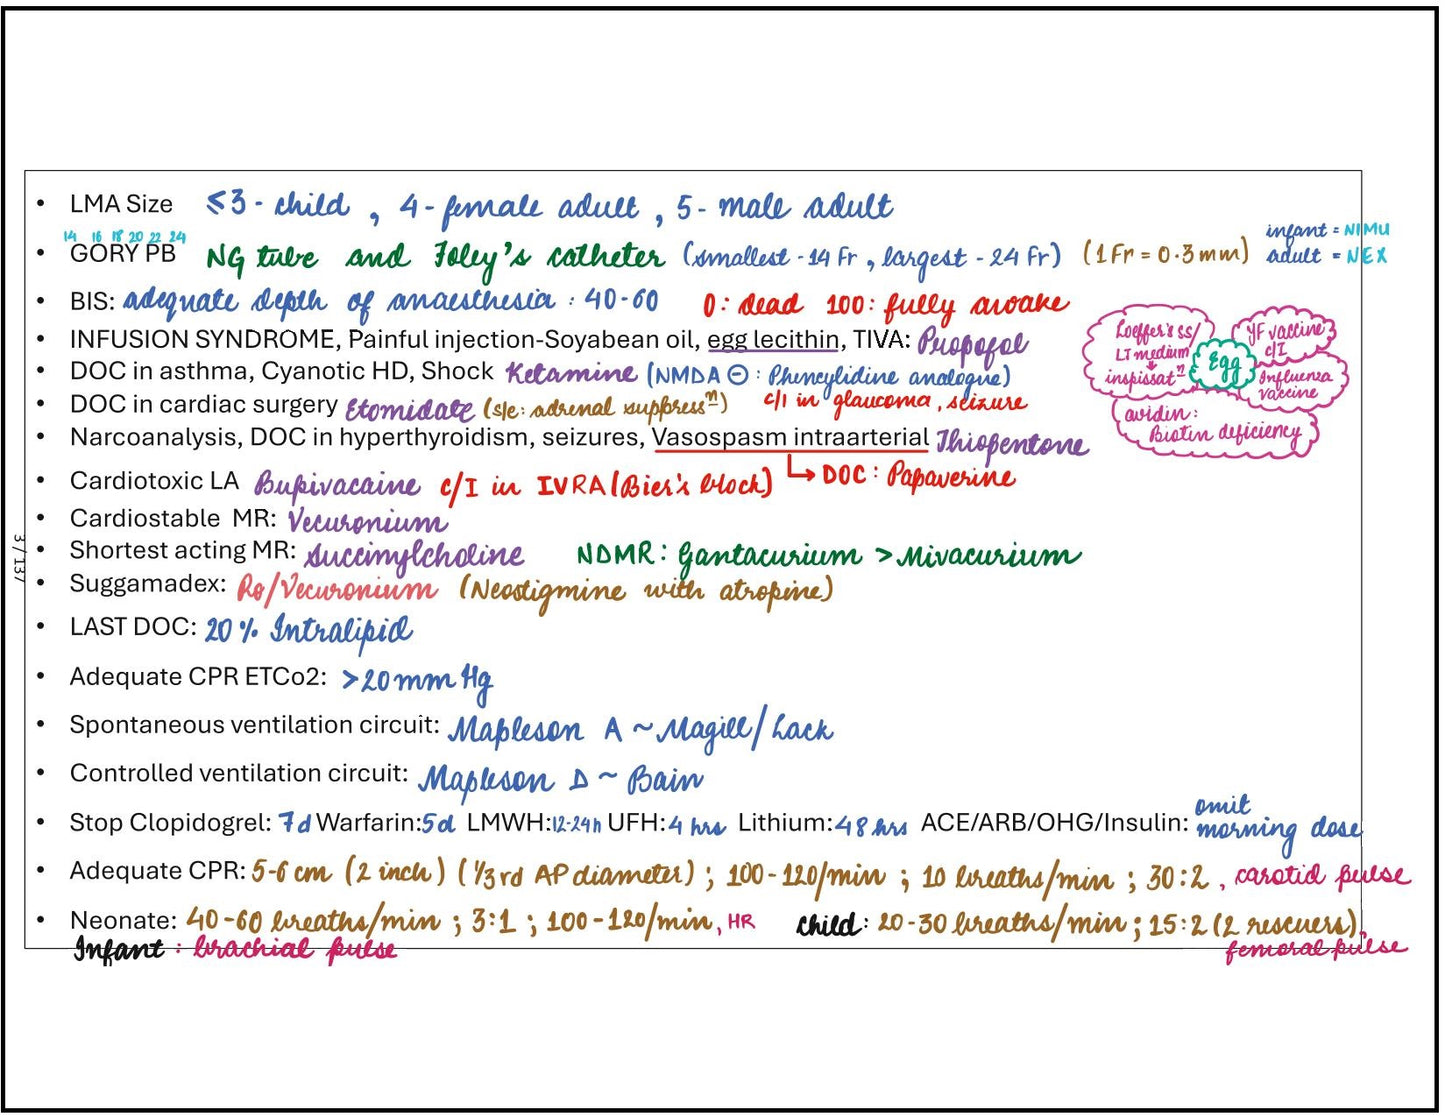 • LMA Size ≤3 - child , 4 - female adult , 5 - male adult
14 16 18 20 22 24
infant = NIMU
• GORY PB NG tube and Foley's catheter (smallest - 14 Fr , largest - 24 Fr) (1 Fr = 0.3 mm) adult = NEX
• BIS: adequate depth of anaesthesia : 40-60 0: dead 100: fully awake
• INFUSION SYNDROME, Painful injection-Soyabean oil, egg lecithin, TIVA: Propofol
• DOC in asthma, Cyanotic HD, Shock Ketamine (NMDA ⊖ : Phencylidine analogue)
• DOC in cardiac surgery Etomidate (s/e: adrenal suppressⁿ) c/I in glaucoma, seizure
Loeffer's ss/
LJ medium
↓
inspissatⁿ
Egg
YF vaccine
c/I
Influenza
vaccine
avidin:
Biotin deficiency
• Narcoanalysis, DOC in hyperthyroidism, seizures, Vasospasm intraarterial Thiopentone
↳ DOC : Papaverine
• Cardiotoxic LA Bupivacaine c/I in IVRA (Bier's block)
• Cardiostable MR: Vecuronium
• Shortest acting MR: Succinylcholine NDMR: Gantacurium > Mivacurium
• Suggamadex: Ro/Vecuronium (Neostigmine with atropine)
3 / 137
• LAST DOC: 20% Intralipid
• Adequate CPR ETCo2: >20 mm Hg
• Spontaneous ventilation circuit: Mapleson A ~ Magill/Lack
• Controlled ventilation circuit: Mapleson D ~ Bain
• Stop Clopidogrel: 7d Warfarin:5d LMWH:12-24h UFH:4 hrs Lithium:48 hrs ACE/ARB/OHG/Insulin: omit
morning dose
• Adequate CPR: 5-6 cm (2 inch) (1/3 rd AP diameter) ; 100-120/min ; 10 breaths/min ; 30:2 , carotid pulse
• Neonate: 40-60 breaths/min ; 3:1 ; 100-120/min, HR child: 20-30 breaths/min ; 15:2 (2 rescuers),
Infant : brachial pulse femoral pulse